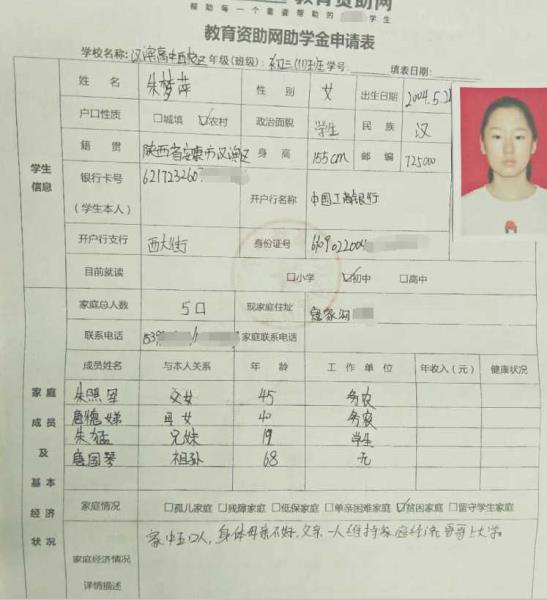 教育资助网
帮助每一个需要帮助的 学生
教育资助网助学金申请表
学校名称: 汉滨高中西校区 年级(班级): 初三(11)班 学号: 填表日期:
姓名 朱梦萍 性别 女 出生日期 2004.5.2
户口性质 □城填 ☑农村 政治面貌 学生 民族 汉
学生信息
籍贯 陕西省安康市汉滨区 身高 155cm 邮编 725000
银行卡号 (学生本人) 621723260 开户行名称 中国工商银行
开户行支行 西大街 身份证号
目前就读 □小学 ☑初中 □高中
家庭总人数 5口 现家庭住址
联系电话 家庭联系电话
成员姓名 与本人关系 年龄 工作单位 年收入(元) 健康状况
家庭成员及基本经济状况
朱照军 父女 45 务农
唐德娣 母女 40 务农
朱猛 兄妹 19 学生
唐国琴 祖孙 68 无
家庭情况 □孤儿家庭 □残障家庭 □低保家庭 □单亲困难家庭 ☑贫困家庭 □留守学生家庭
家庭经济情况详情描述 家中五口人,身体母亲不好,父亲一人维持家庭经济,哥哥上大学。